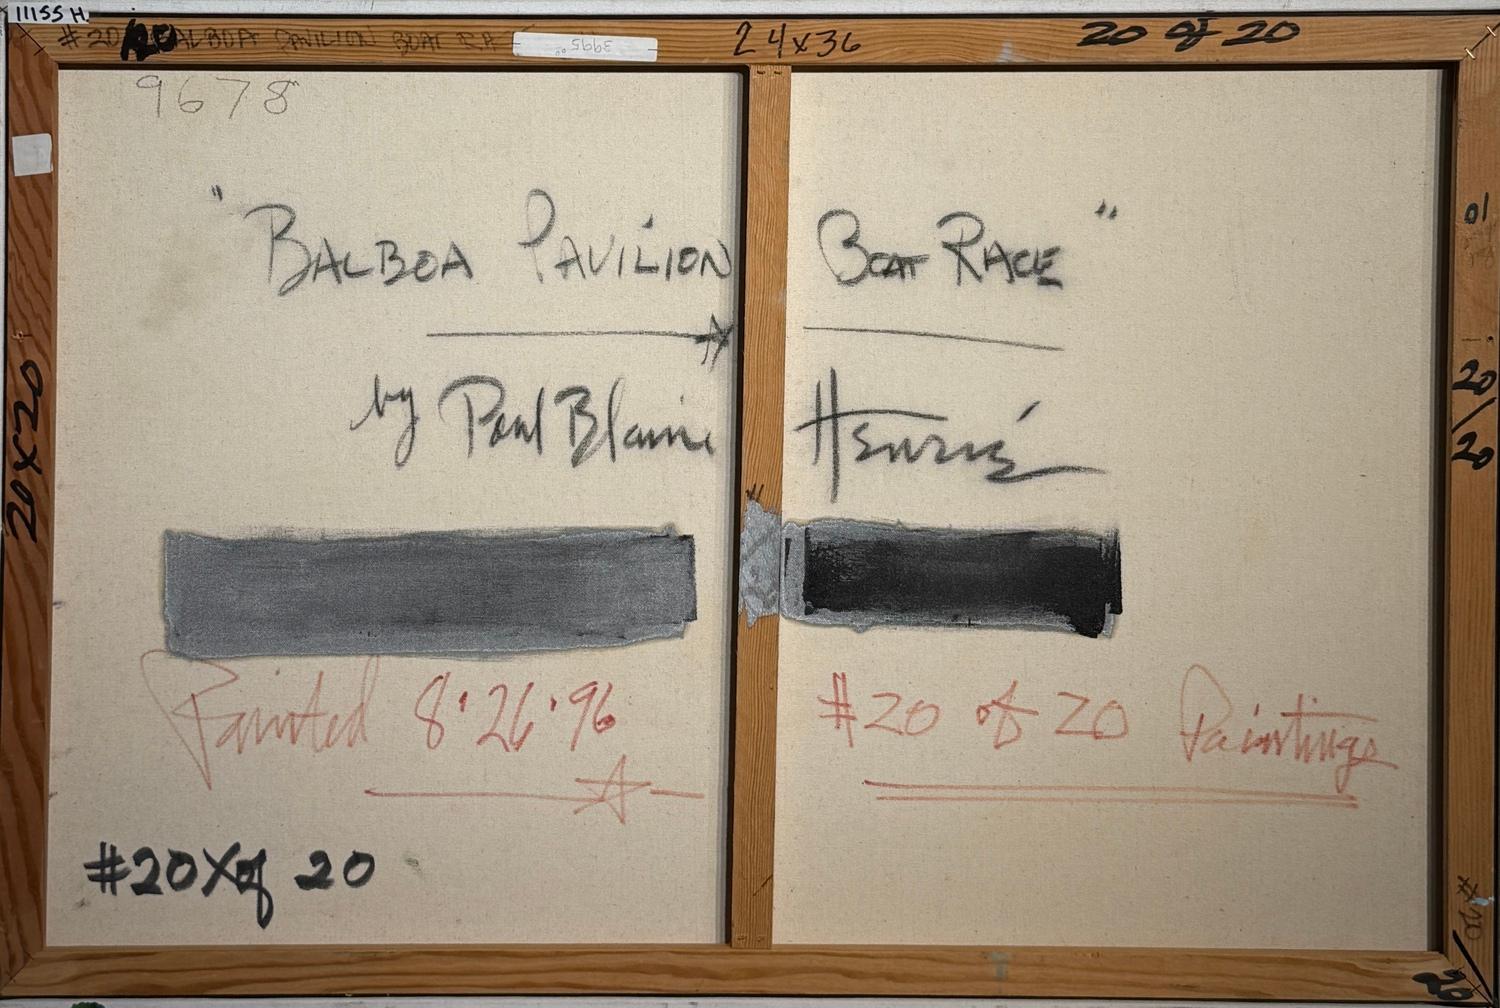 11155 H.
#20 BALBOA PAVILION BOAT RA
3995.00
24x36
20 of 20
9678
"BALBOA PAVILION BOAT RACE"
by Paul Blaine Henrié
20x20
20/20
Painted 8·26·96
#20 of 20 Paintings
#20 X of 20